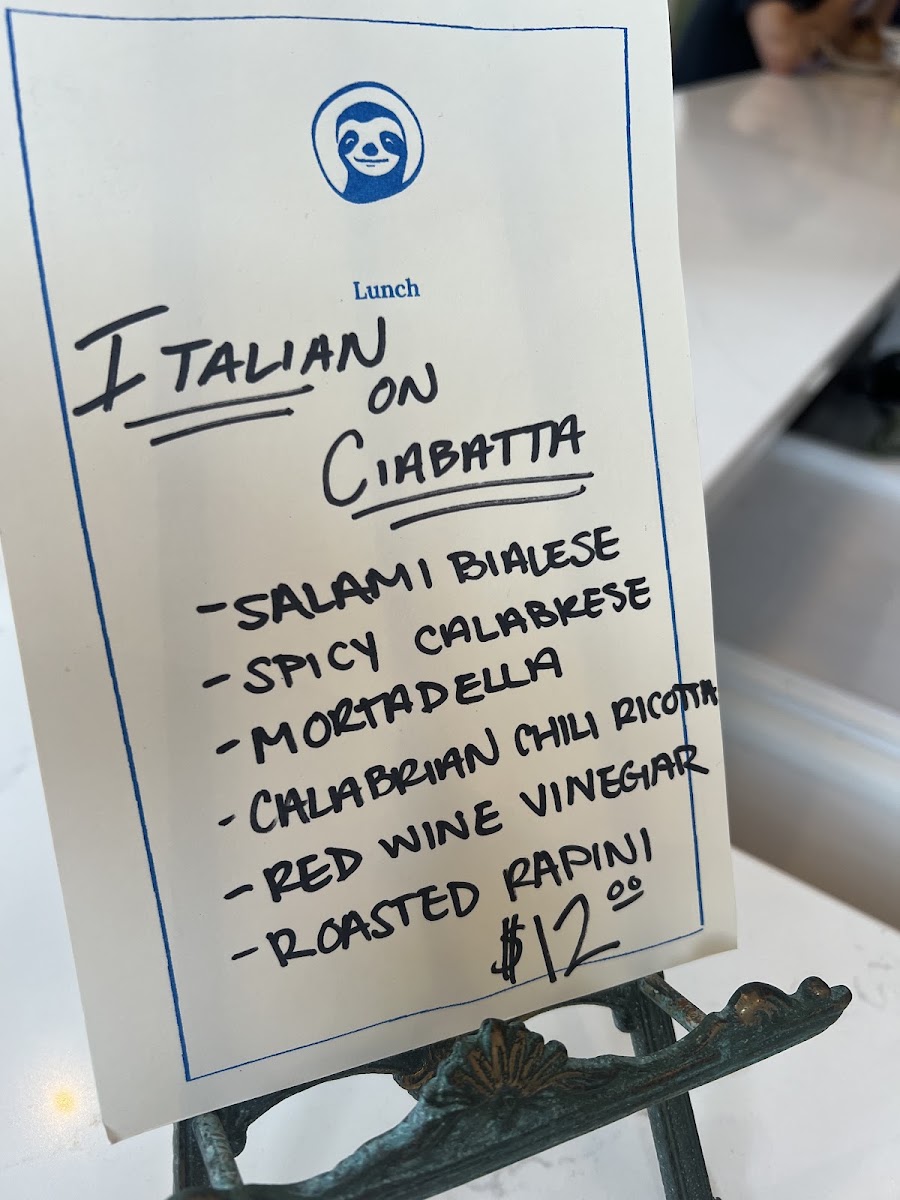 Lunch
ITALIAN
ON
CIABATTA
- SALAMI BIALESE
- SPICY CALABRESE
- MORTADELLA
- CALABRIAN CHILI RICOTTA
- RED WINE VINEGAR
- ROASTED RAPINI
$12.00